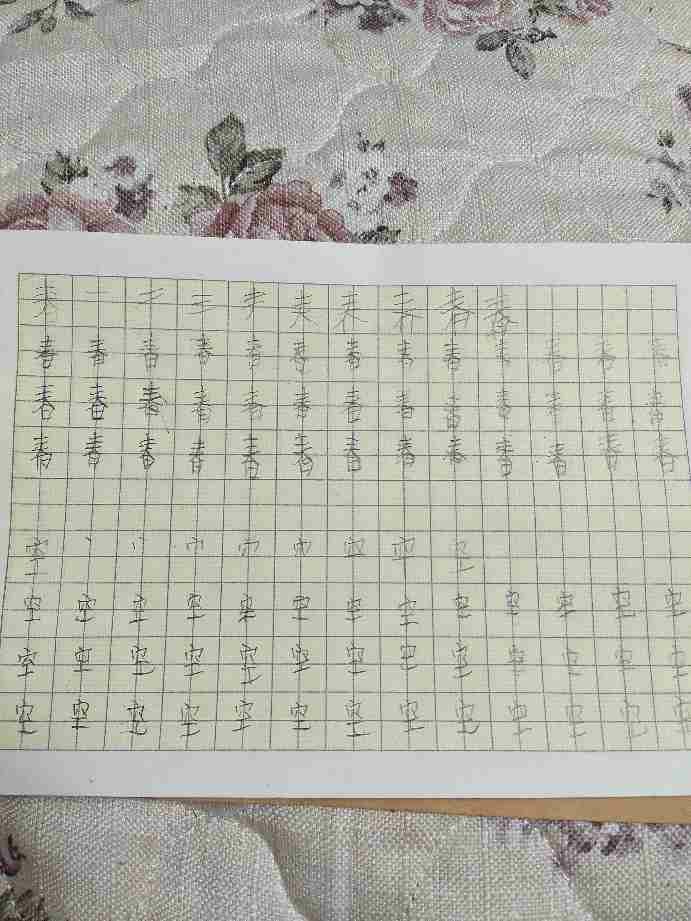 春 一 二 三 𡗗 夫 春 春
春 春 春 春 春 春 春 春 春 春 春 春 春
春 春 春 春 春 春 春 春 春 春 春 春 春
春 春 春 春 春 春 春 春 春 春 春 春 春
空 丶 空
空 空 空 空 空 空 空 空 空 空 空 空 空
空 空 空 空 空 空 空 空 空 空 空 空 空
空 空 空 空 空 空 空 空 空 空 空 空 空